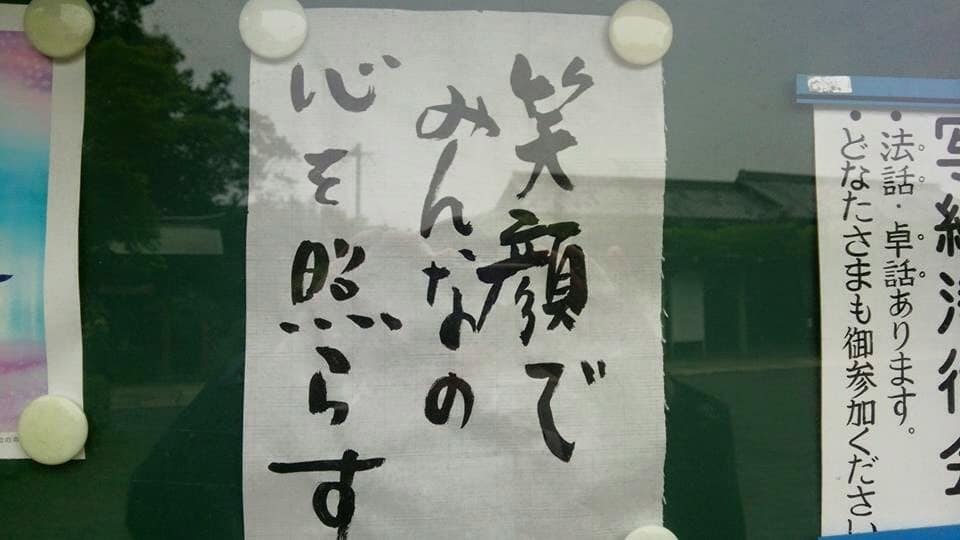 写経
・法話・卓話あります。
・どなたさまも御参加ください
笑顔で
みんなの
心を照らす